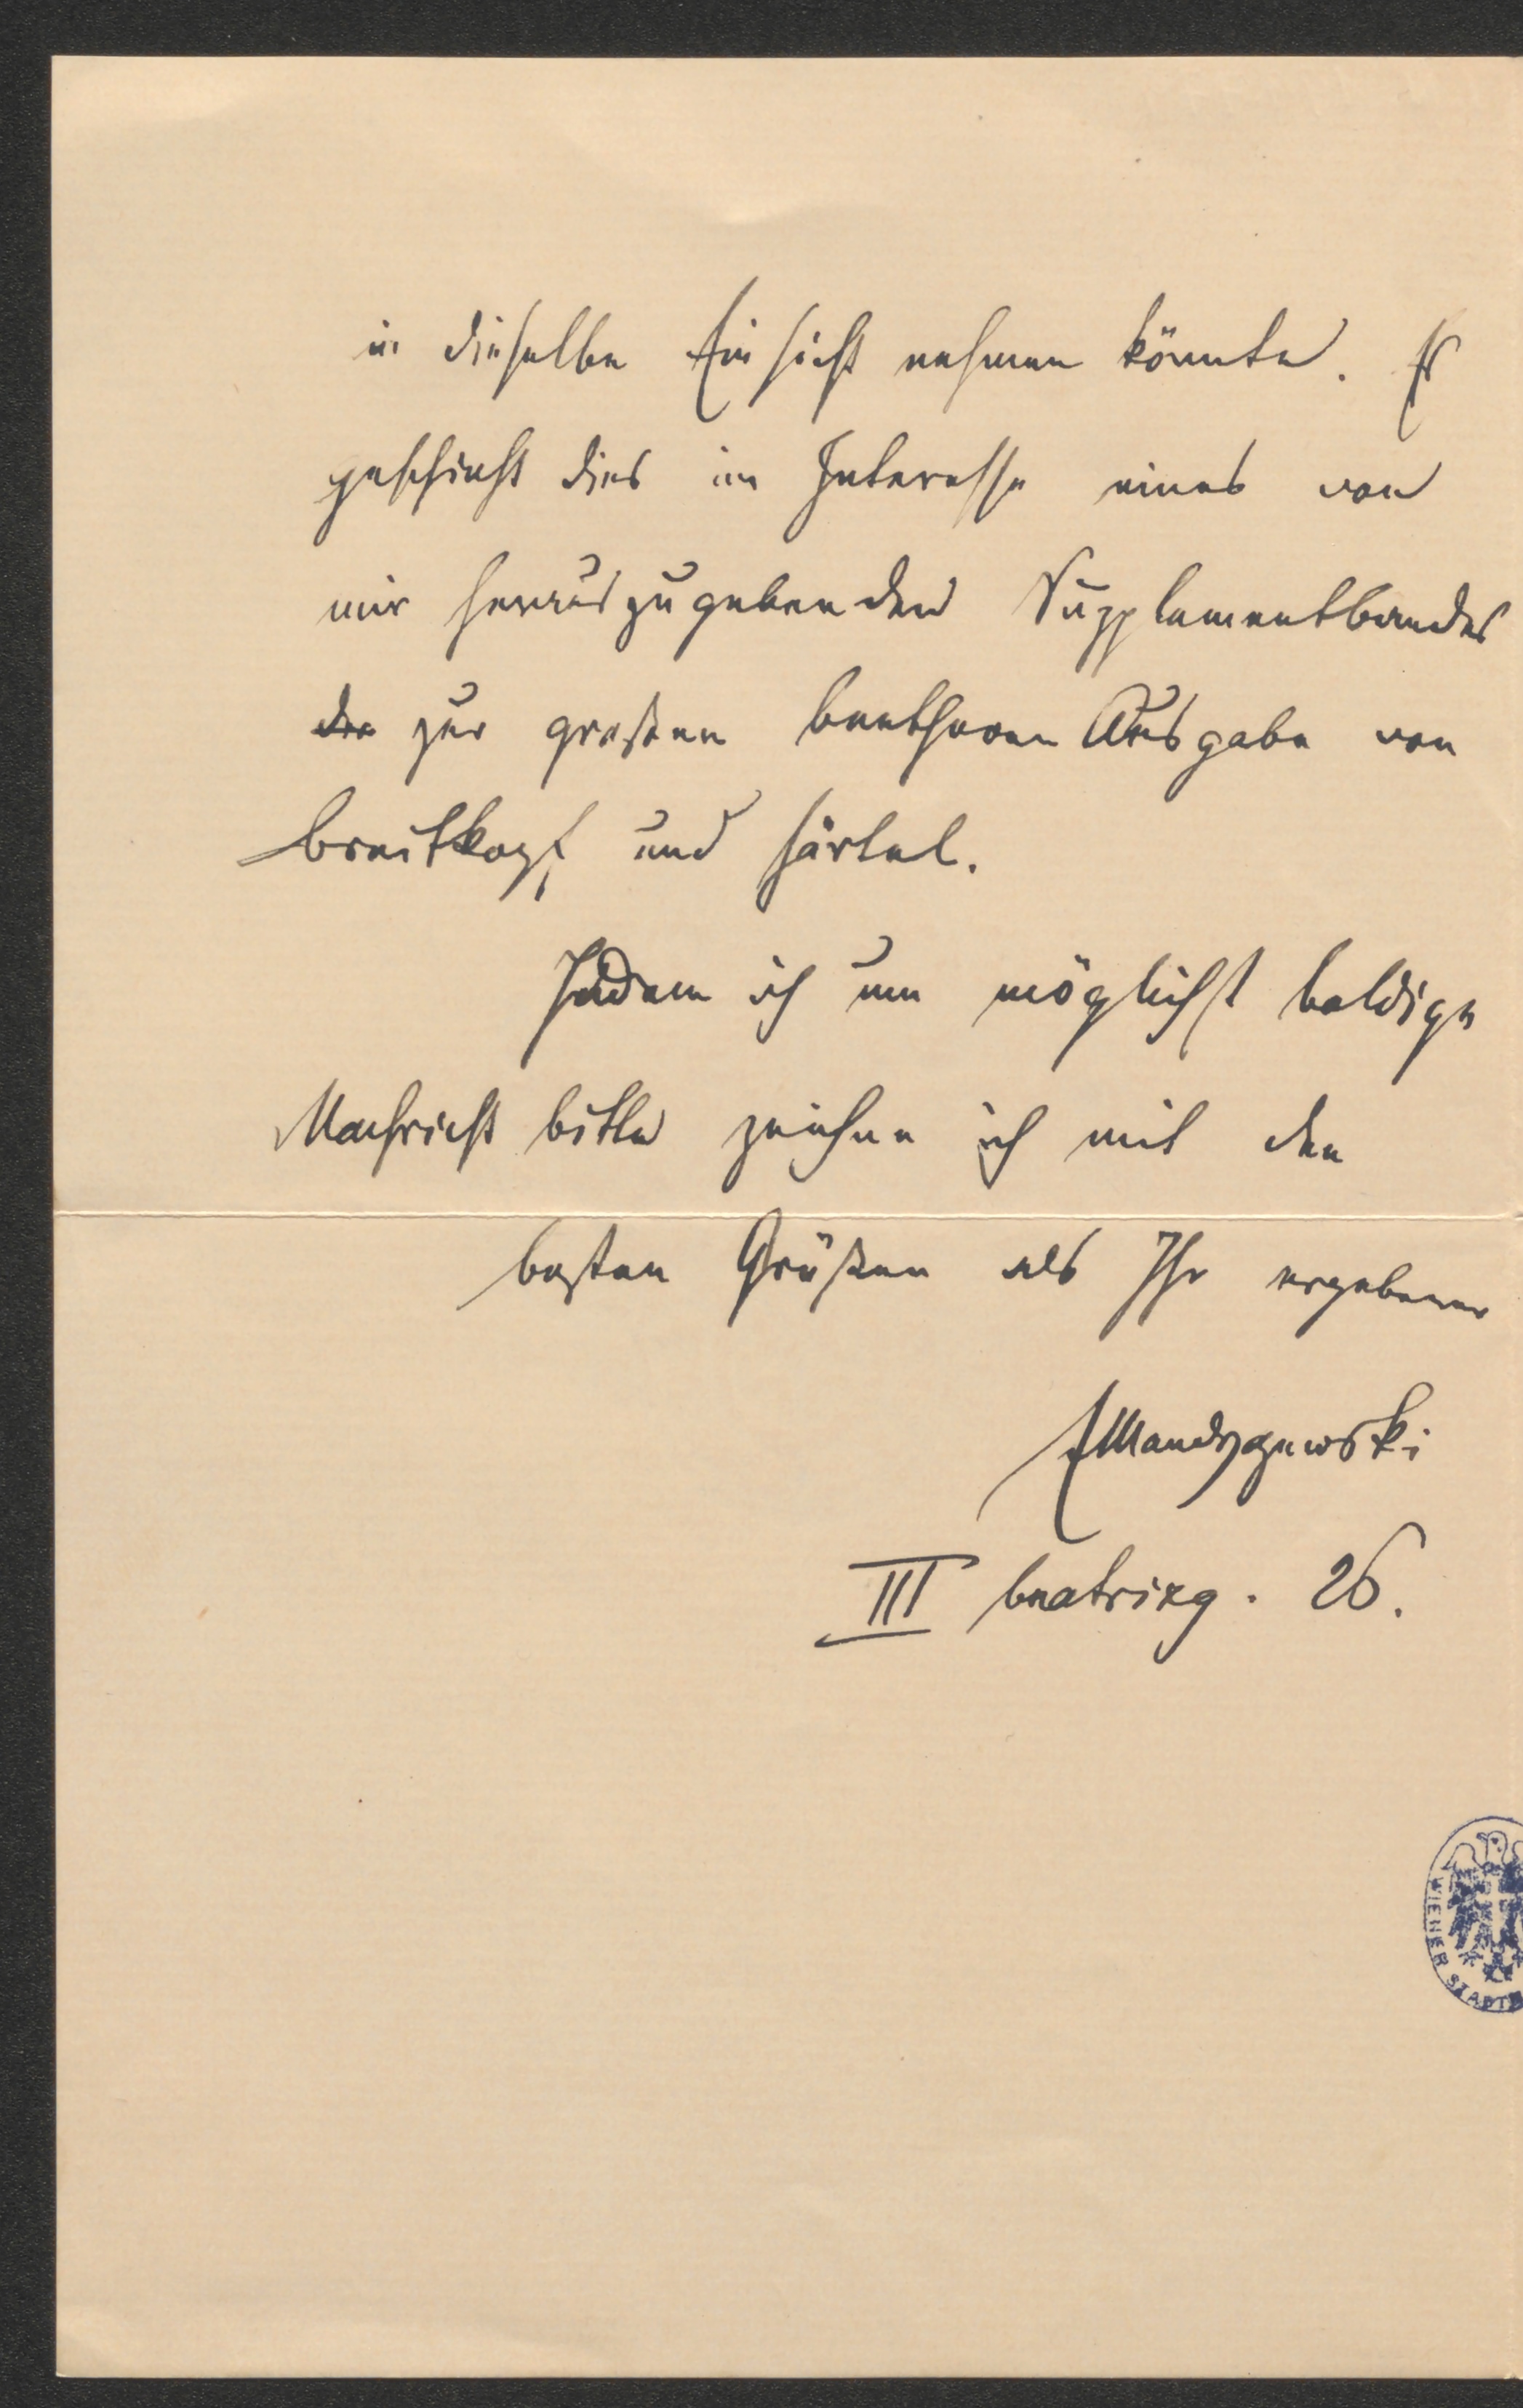 in dieselbe Einsicht nehmen könnte. Es
geschieht dies im Interesse eines von
mir herauszugebenden Supplementbandes
der zur großen Beethoven Ausgabe von
Breitkopf und Härtel.
Indem ich um möglichst baldige
Nachricht bitte zeichne ich mit den
besten Grüßen als Ihr ergebener
EMandyczewski
III Beatrixg. 26.
WIENER STADTB